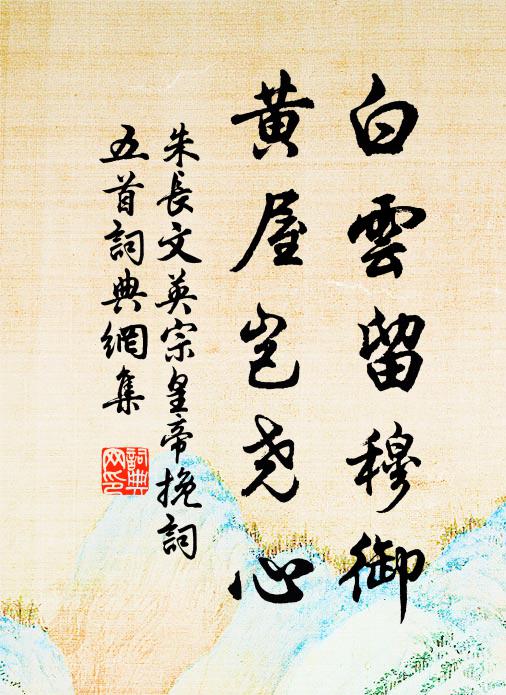 白雲留穆御
黃屋豈尧心
朱長文英宗皇帝挽詞
五首詞典網集
詞典网印